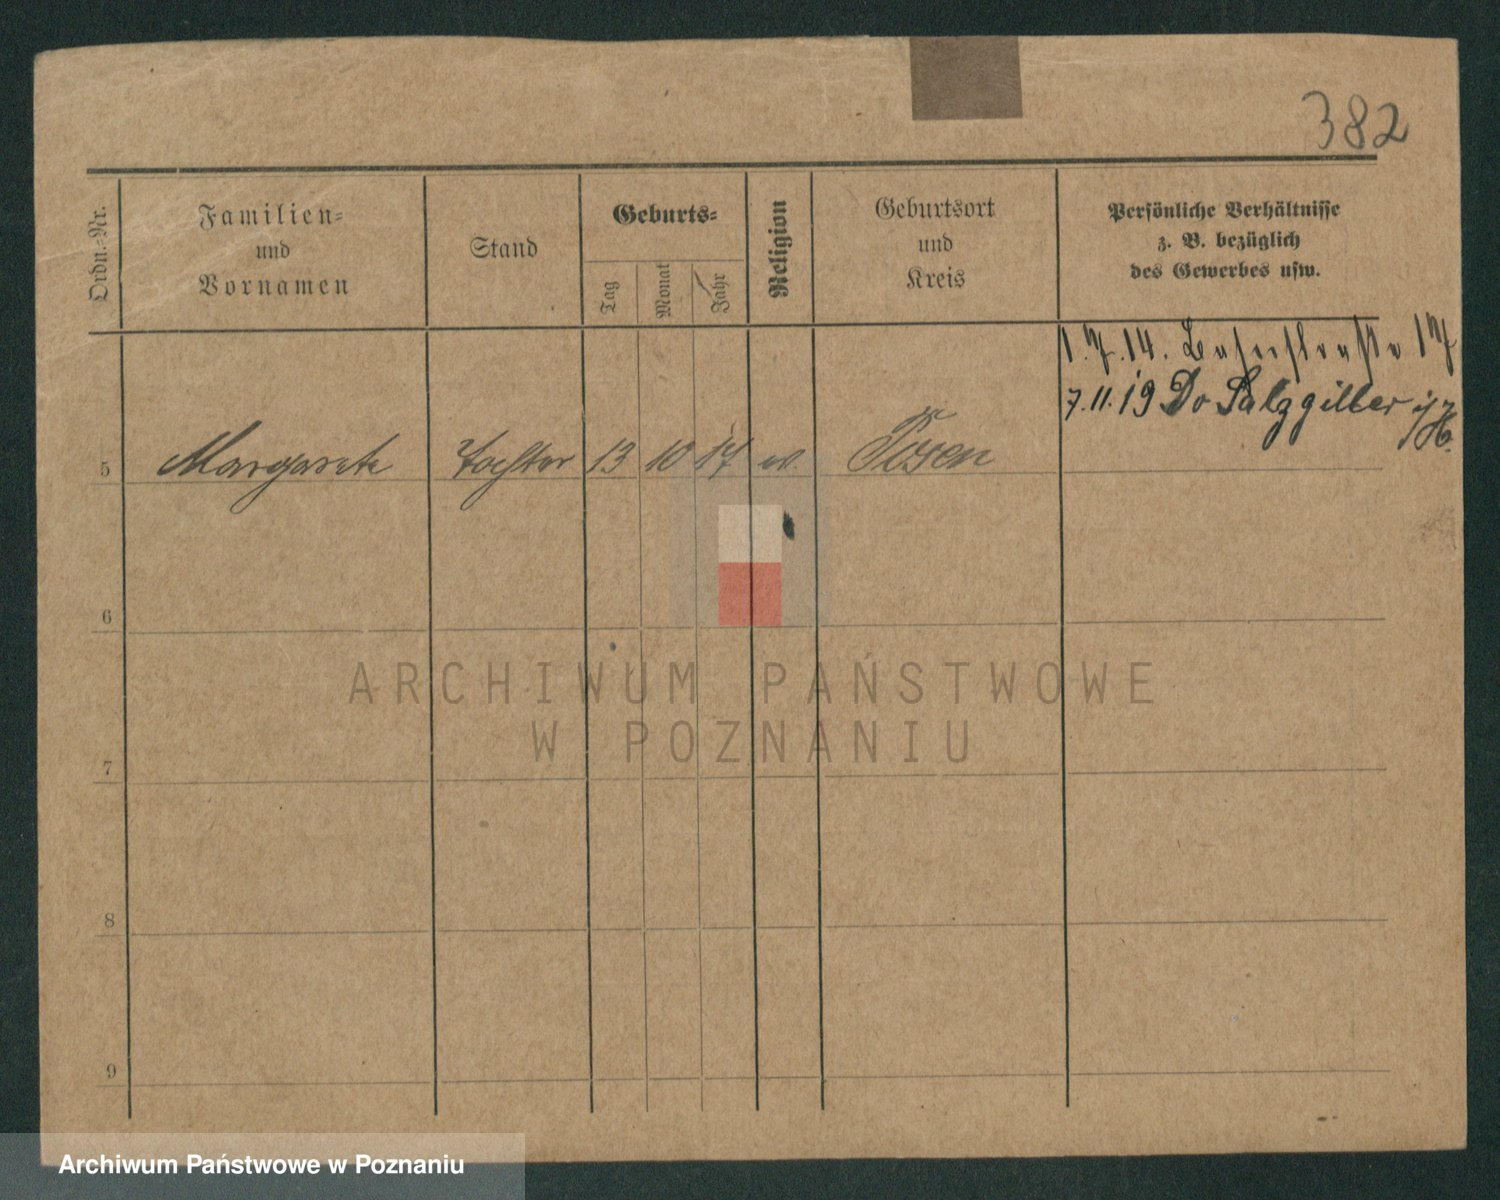 382
Ordn.-Nr.
Familien-
und
Vornamen
Stand
Geburts-
Tag
Monat
Jahr
Religion
Geburtsort
und
Kreis
Persönliche Verhältnisse
z. B. bezüglich
des Gewerbes usw.
1.7.14. 17
7.11.19 Do
5 Margarete Tochter 13 10 17 ev. Posen
6
7
8
9
ARCHIWUM PAŃSTWOWE
W POZNANIU
Archiwum Państwowe w Poznaniu